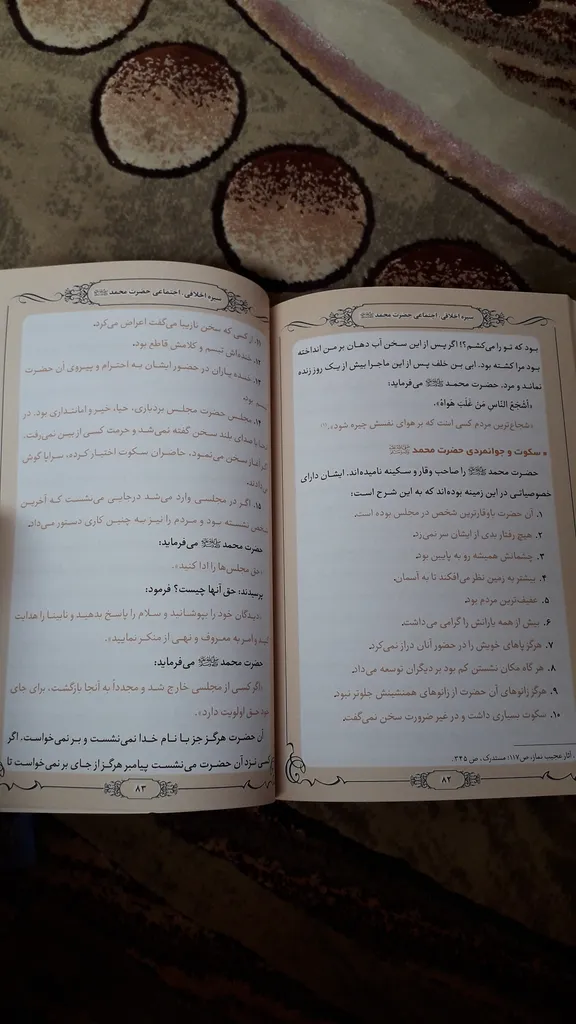 سیره اخلاقی، اجتماعی حضرت محمد ﷺ
بود که تو را می‌کشم؟! اگر پس از این سخن آب دهان بر من انداخته
بود مرا کشته بود. ابی بن خلف پس از این ماجرا بیش از یک روز زنده
نماند و مرد. حضرت محمد ﷺ می‌فرماید:
«أَشْجَعُ النّاسِ مَنْ غَلَبَ هَواهُ».
«شجاع‌ترین مردم کسی است که بر هوای نفسش چیره شود».(۱)
سکوت و جوانمردی حضرت محمد ﷺ
حضرت محمد ﷺ را صاحب وقار و سکینه نامیده‌اند. ایشان دارای
خصوصیاتی در این زمینه بوده‌اند که به این شرح است:
۱. آن حضرت باوقارترین شخص در مجلس بوده است.
۲. هیچ رفتار بدی از ایشان سر نمی‌زد.
۳. چشمانش همیشه رو به پایین بود.
۴. بیشتر به زمین نظر می‌افکند تا به آسمان.
۵. عفیف‌ترین مردم بود.
۶. بیش از همه یارانش را گرامی می‌داشت.
۷. هرگز پاهای خویش را در حضور آنان دراز نمی‌کرد.
۸. هر گاه مکان نشستن کم بود بر دیگران توسعه می‌داد.
۹. هرگز زانوهای آن حضرت از زانوهای همنشینش جلوتر نبود.
۱۰. سکوت بسیاری داشت و در غیر ضرورت سخن نمی‌گفت.
۱. آثار عجیب نماز، ص ۱۱۷؛ مستدرک، ص ۳۴۵.
۸۲
سیره اخلاقی، اجتماعی حضرت محمد ﷺ
۱۱. از کسی که سخن نازیبا می‌گفت اعراض می‌کرد.
۱۲. خنده‌اش تبسم و کلامش قاطع بود.
۱۳. خنده یاران در حضور ایشان به احترام و پیروی آن حضرت
تبسم بود.
۱۴. مجلس حضرت مجلس بردباری، حیا، خیر و امانتداری بود. در
صدای بلند سخن گفته نمی‌شد و حرمت کسی از بین نمی‌رفت.
آغاز سخن می‌نمود، حاضران سکوت اختیار کرده، سراپا گوش
می‌دادند.
۱۵. اگر در مجلسی وارد می‌شد در جایی می‌نشست که آخرین
شخص نشسته بود و مردم را نیز به چنین کاری دستور می‌داد.
حضرت محمد ﷺ می‌فرماید:
«حق مجلس‌ها را ادا کنید».
پرسیدند: حق آنها چیست؟ فرمود:
«دیدگان خود را بپوشانید و سلام را پاسخ بدهید و نابینا را هدایت
کنید و امر به معروف و نهی از منکر نمایید».
حضرت محمد ﷺ می‌فرماید:
«اگر کسی از مجلسی خارج شد و مجدداً به آنجا بازگشت، برای جای
خود حق اولویت دارد».
آن حضرت هرگز جز با نام خدا نمی‌نشست و بر نمی‌خواست. اگر
کسی نزد آن حضرت می‌نشست پیامبر هرگز از جای بر نمی‌خواست تا
۸۳